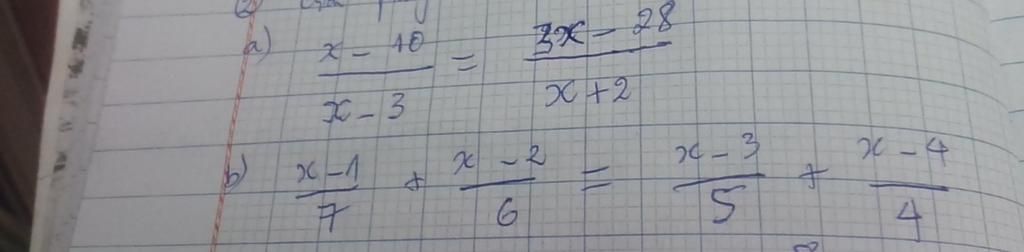 a) x - 10 / x - 3 = 3x - 28 / x + 2
b) x - 1 / 7 + x - 2 / 6 = x - 3 / 5 + x - 4 / 4